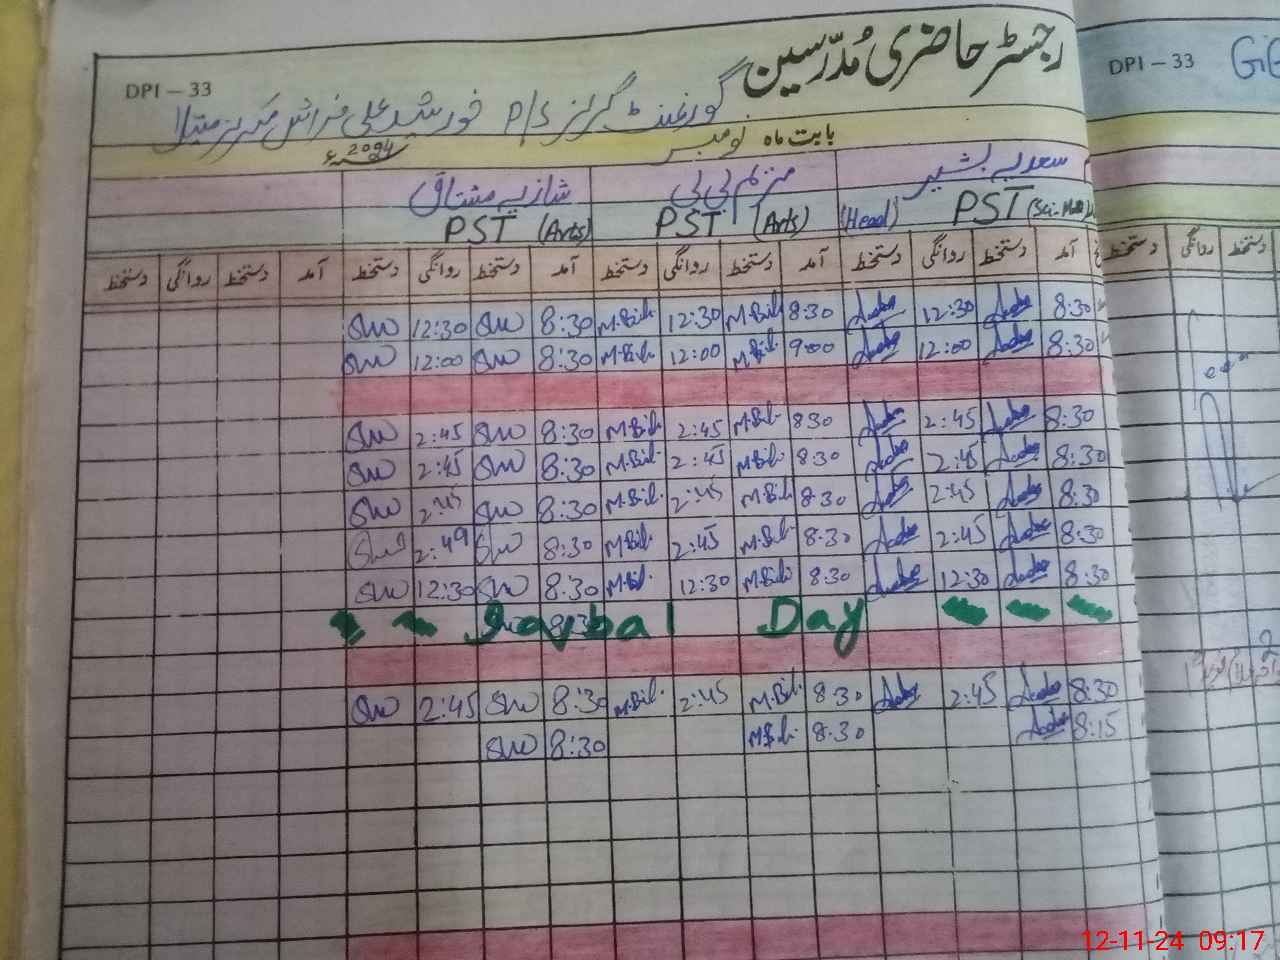 رجسٹر حاضری مُدّرسین
DPI – 33
DPI – 33
گورنمنٹ گرلز P/S خورشید علی فراش
بابت ماہ نومبر 2024ء
سعدیہ بشیر مریم بی بی شازیہ مشتاق
(Head) PST (Sci. Math) PST (Arts) PST (Arts)
آمد دستخط روانگی دستخط آمد دستخط روانگی دستخط آمد دستخط روانگی دستخط آمد دستخط روانگی دستخط
روانگی دستخط
8:30 12:30 8:30 M.Bibi 12:30 M.Bibi 8:30 12:30
8:30 12:00 9:00 M.Bibi 12:00 M.Bibi 8:30 12:00
8:30 2:45 8:30 M.Bibi 2:45 M.Bibi 8:30 2:45
8:30 2:45 8:30 M.Bibi 2:45 M.Bibi 8:30 2:45
8:30 2:45 8:30 M.Bibi 2:45 M.Bibi 8:30 2:45
8:30 2:45 8:30 M.Bibi 2:45 M.Bibi 8:30 2:49
8:30 12:30 8:30 M.Bibi 12:30 M.Bibi 8:30 12:30
Iqbal Day
8:30 2:45 8:30 M.Bibi 2:45 M.Bibi 8:30 2:45
8:15 8:30 M.Bibi 8:30
12-11-24 09:17